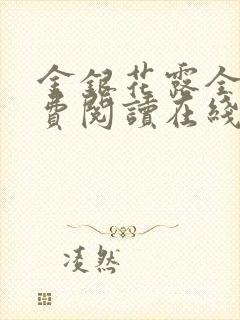 金銀花露全
費閱讀在綫
凌然